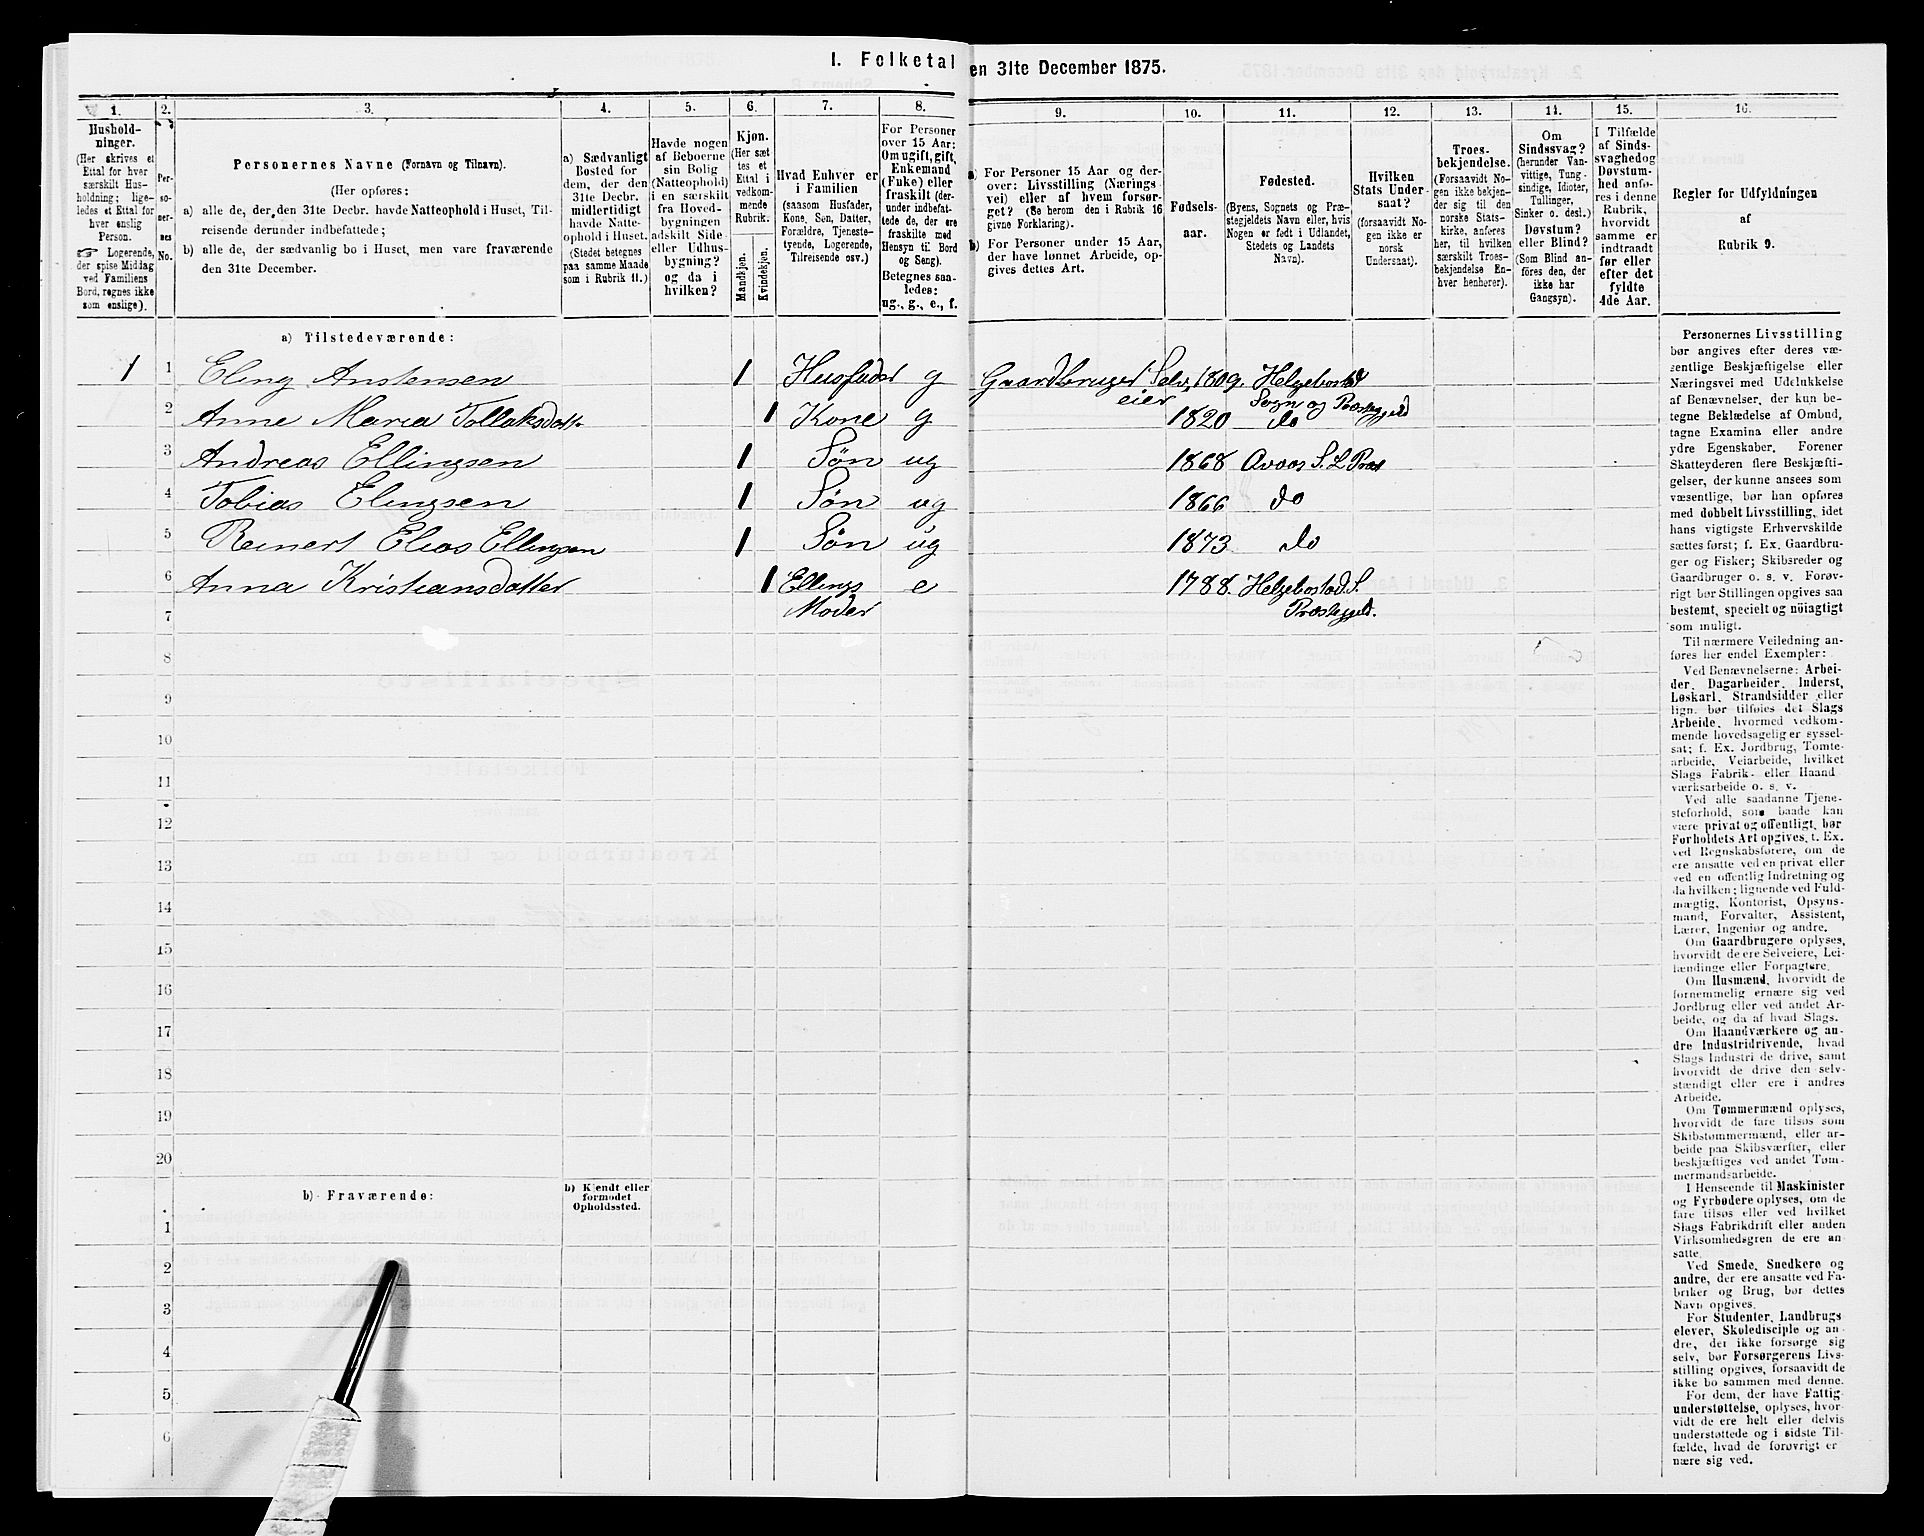 I. Folketal
en 31te December 1875.
1.
Hushold-
ninger.
(Her skrives et
Ettal for hver
særskilt Hus-
holdning; lige-
ledes et Ettal for
hver enslig
Person.
☞ Logerende,
der spise Middag
ved Familiens
Bord, regnes ikke
som enslige).
2.
Per-
so-
ner-
nes
No.
3.
Personernes Navne (Fornavn og Tilnavn).
(Her opføres:
a) alle de, der den 31te Decbr. havde Natteophold i Huset, Til-
reisende derunder indbefattede;
b) alle de, der sædvanlig bo i Huset, men vare fraværende
den 31te December.
4.
a) Sædvanligt
Bosted for
dem, der den
31te Decbr.
midlertidigt
havde Natte-
ophold i Huset.
(Stedet betegnes
paa samme Maade
som i Rubrik 11.)
5.
Havde nogen
af Beboerne
sin Bolig
(Natteophold)
i en særskilt
fra Hoved-
bygningen
adskilt Side-
eller Udhus-
bygning?
og da i
hvilken?
6.
Kjøn.
(Her sæt
tes et
Ettal i
vedkom-
mende
Rubrik.
Mandkjøn.
Kvindekjøn.
7.
Hvad Enhver er
i Familien
(saasom Husfader,
Kone, Søn, Datter,
Forældre, Tjeneste-
tyende, Logerende,
Tilreisende osv.)
8.
For Personer
over 15 Aar:
Om ugift, gift,
Enkemand
(Fuke) eller
fraskilt (der-
under indbefat-
tede de, der ere
fraskilte med
Hensyn til Bord
og Seng).
Betegnes saa-
ledes:
ug., g., e., f.
9.
a) For Personer 15 Aar og der-
over: Livsstilling (Nærings
vei) eller af hvem forsør-
get? (Se herom den i Rubrik 16
givne Forklaring).
b) For Personer under 15 Aar,
der have lønnet Arbeide, op-
gives dettes Art.
10.
Fødsels-
aar.
11.
Fødested.
(Byens, Sognets og Præ-
stegjeldets Navn eller, hvis
Nogen er født i Udlandet,
Stedets og Landets
Navn).
12.
Hvilken
Stats Under-
saat?
(forsaavidt No-
gen ikke er
norsk
Undersaat).
13.
Troes-
bekjendelse.
(Forsaavidt No-
gen ikke bekjen-
der sig til den
norske Stats-
kirke, anføres
her, til hvilken
særskilt Troes-
bekjendelse En-
hver henhører).
14.
Om
Sindssvag?
(herunder Van-
vittige, Tung-
sindige, Idioter,
Tullinger,
Sinker o. desl.)
Døvstum?
eller Blind?
(Som Blind an-
føres den, der
ikke har
Gangsyn).
15.
I Tilfælde
af Sinds-
svaghed og
Døvstum-
hed anfø-
res i denne
Rubrik,
hvorvidt
samme er
indtraadt
før eller
efter det
fyldte
4de Aar.
16.
Regler for Udfyldningen
af
Rubrik 9.
a) Tilstedeværende:
1 1 Eling Anstensen 1 Husfader g Gaardbruger Selv 1809. Helgebostad
eier Sogn og Præstegjeld
2 Anne Maria Tollaksdatter 1 Kone g 1820 do
3 Andreas Ellingsen 1 Søn ug 1868 Avaas S. L Præst
4 Tobias Elingsen 1 Søn ug 1866 do
5 Reinert Elias Ellingsen 1 Søn ug 1873 do
6 Anna Kristiansdatter 1 Ellings e 1788. Helgebostad. S.
7 Moder Præstegjeld.
8
9
10
11
12
13
14
15
16
17
18
19
20
b) Fraværende:
b) Kjendt eller
formodet
Opholdssted.
1
2
3
4
5
6
Personernes Livsstilling
bør angives efter deres væ-
sentlige Beskjæftigelse eller
Næringsvei med Udelukkelse
af Benævnelser, der kun be-
tegne Beklædelse af Ombud,
tagne Examina eller andre
ydre Egenskaber. Forener
Skatteyderen flere Beskjæfti-
gelser, der kunne ansees som
væsentlige, bør han opføres
med dobbelt Livsstilling, idet
hans vigtigste Erhvervskilde
sættes først; f. Ex. Gaardbru-
ger og Fisker; Skibsreder og
Gaardbruger o. s. v. Forøv-
rigt bør Stillingen opgives saa
bestemt, specielt og nöiagtigt
som muligt.
Til nærmere Veiledning an-
føres her endel Exempler:
Ved Benævnelserne: Arbei-
der, Dagarbeider, Inderst,
Løskarl, Strandsidder eller
lign. bør tilføies det Slags
Arbeide, hvormed vedkom-
mende hovedsagelig er syssel-
sat; f. Ex. Jordbrug, Tomte-
arbeide, Veiarbeide, hvilket
Slags Fabrik- eller Haand
værksarbeide o. s. v.
Ved alle saadanne Tjene-
steforhold, som baade kan
være privat og offentligt, bør
Forholdets Art opgives, t. Ex.
ved Regnskabsførere, om de
ere ansatte ved en privat eller
ved en offentlig Indretning og
da hvilken; lignende ved Fuld-
mægtig, Kontorist, Opsyns-
mand, Forvalter, Assistent,
Lærer, Ingeniør og andre.
Om Gaardbrugere oplyses,
hvorvidt de ere Selveiere, Lei-
lændinge eller Forpagtere.
Om Husmænd, hvorvidt de
fornemmelig ernære sig ved
Jordbrug eller ved andet Ar-
beide, og da af hvad Slags.
Om Haandværkere og an-
dre Industridrivende, hvad
Slags Industri de drive, samt
hvorvidt de drive den selv-
stændigt eller ere i andres
Arbeide.
Om Tømmermænd oplyses,
hvorvidt de fare tilsøs som
Skibstømmermænd, eller ar-
beide paa Skibsværfter, eller
beskjæftiges ved andet Tøm-
mermandsarbeide.
I Henseende til Maskinister
og Fyrbødere oplyses, om de
fare tilsøs eller ved hvilket
Slags Fabrikdrift eller anden
Virksomhedsgren de ere an-
satte.
Ved Smede, Snedkere og
andre, der ere ansatte ved Fa-
briker og Brug, bør dettes
Navn opgives.
For Studenter, Landbrugs
elever, Skoledisciple og an-
dre, der ikke forsørge sig
selv, bør Forsørgerens Livs-
stilling opgives, forsaavidt de
ikke bo sammen med denne.
For dem, der have Fattig-
understøttelse, oplyses, hvor-
vidt de ere helt eller delvis
understøttede og i sidste Til-
fælde, hvad de forøvrigt er
nære sig ved.